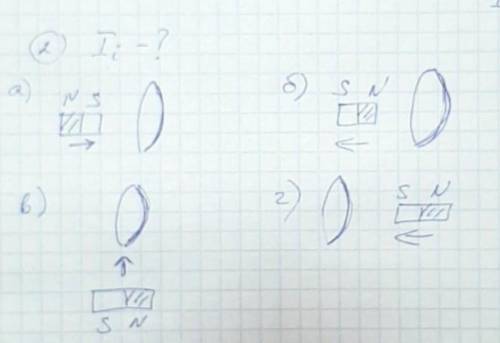 2) Ii - ?
а) N S
б) S N
в) S N
г) S N